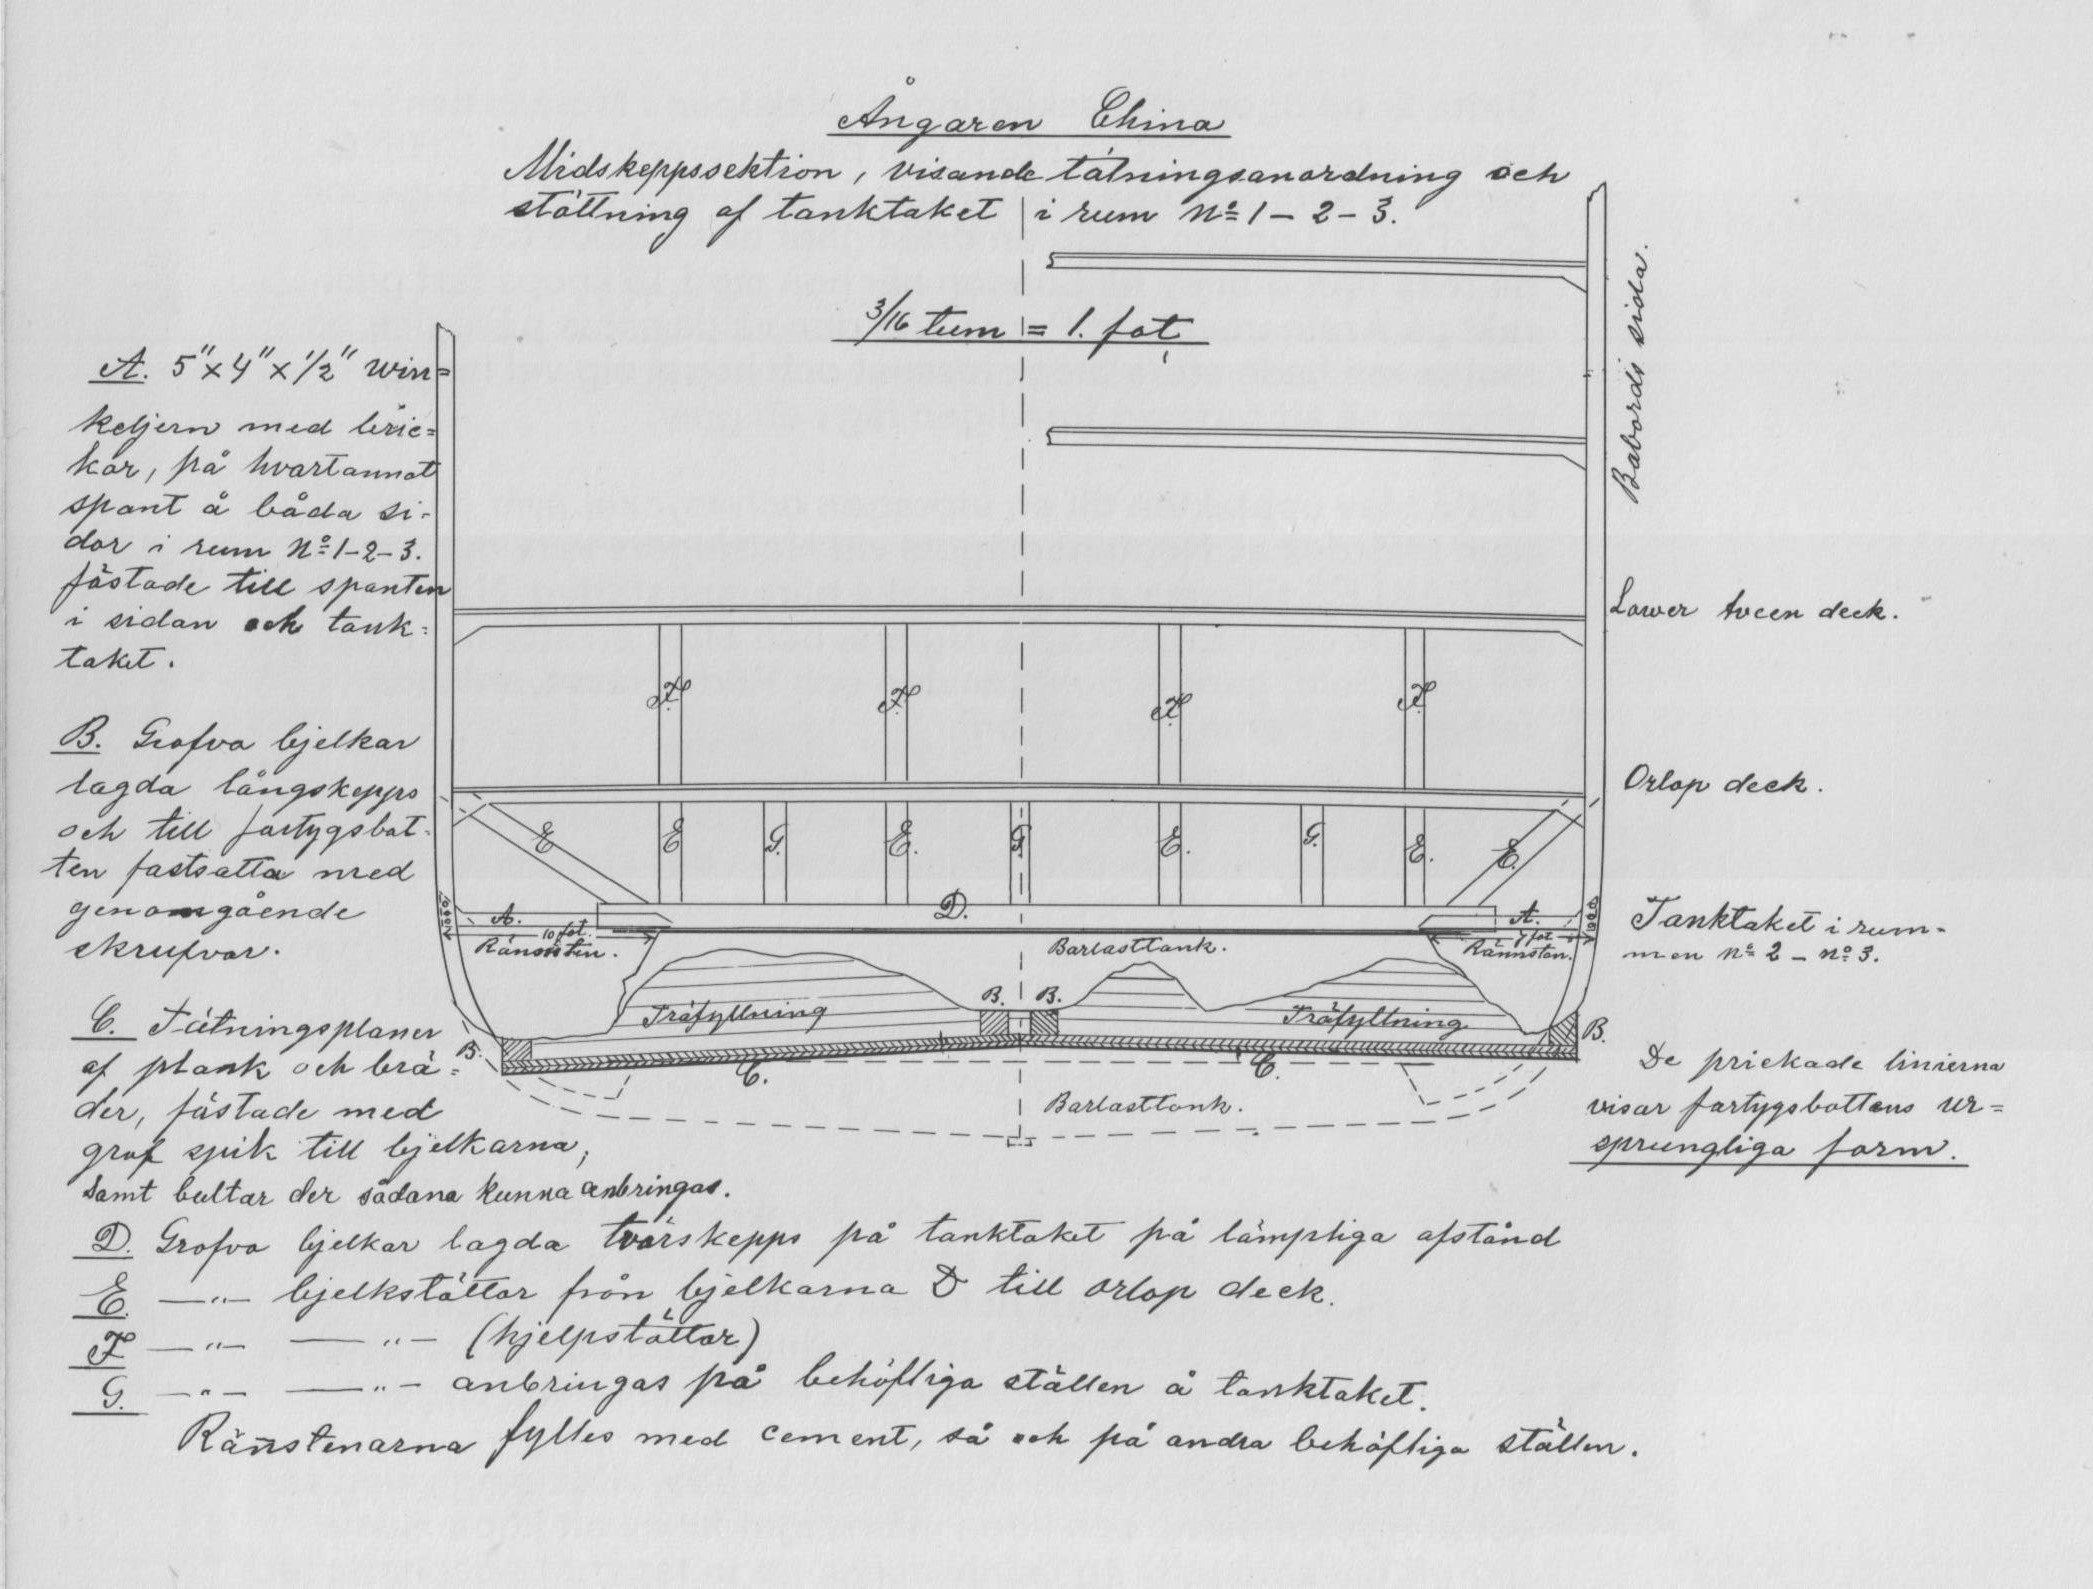 Ångaren China
Midskeppssektion, visande tätningsanordning och
stöttning af tanktaket i rum No 1 – 2 – 3.
3/16 tum = 1. fot
Babords sida.
A. 5" x 4" x 1/2" win=
keljern med bric=
kor, på hvartannat
spant å båda si-
dor i rum No 1-2-3.
fästade till spanten
i sidan och tank=
taket.
Lower tween deck.
F. F. F. F.
B. Grofva bjelkar
lagda långskepps
och till fartygsbot-
ten fastsatta med
genomgående
skrufvar.
Orlop deck.
E E G. E. G E. G. E. E.
A. D. A.
10 fot. 7 fot
Rännsten. Barlasttank. Rännsten.
Tanktaket i rum-
men No 2 – No 3.
B. B.
Träfyllning Träfyllning
B. B.
C. C.
Barlasttank.
C. Tätningsplaner
af plank och brä=
der, fästade med
grof spik till bjelkarna,
samt bultar der sådana kunna anbringas.
De prickade linierna
visar fartygsbottens ur=
sprungliga form.
D. Grofva bjelkar lagda tvärskepps på tanktaket på lämpliga afstånd
E. —"— bjelkstöttor från bjelkarna D till orlop deck.
F —"— —"— (hjelpstöttor)
G. —"— —"— anbringas på behöfliga ställen å tanktaket.
Ränstenarna fylles med cement, så och på andra behöfliga ställen.